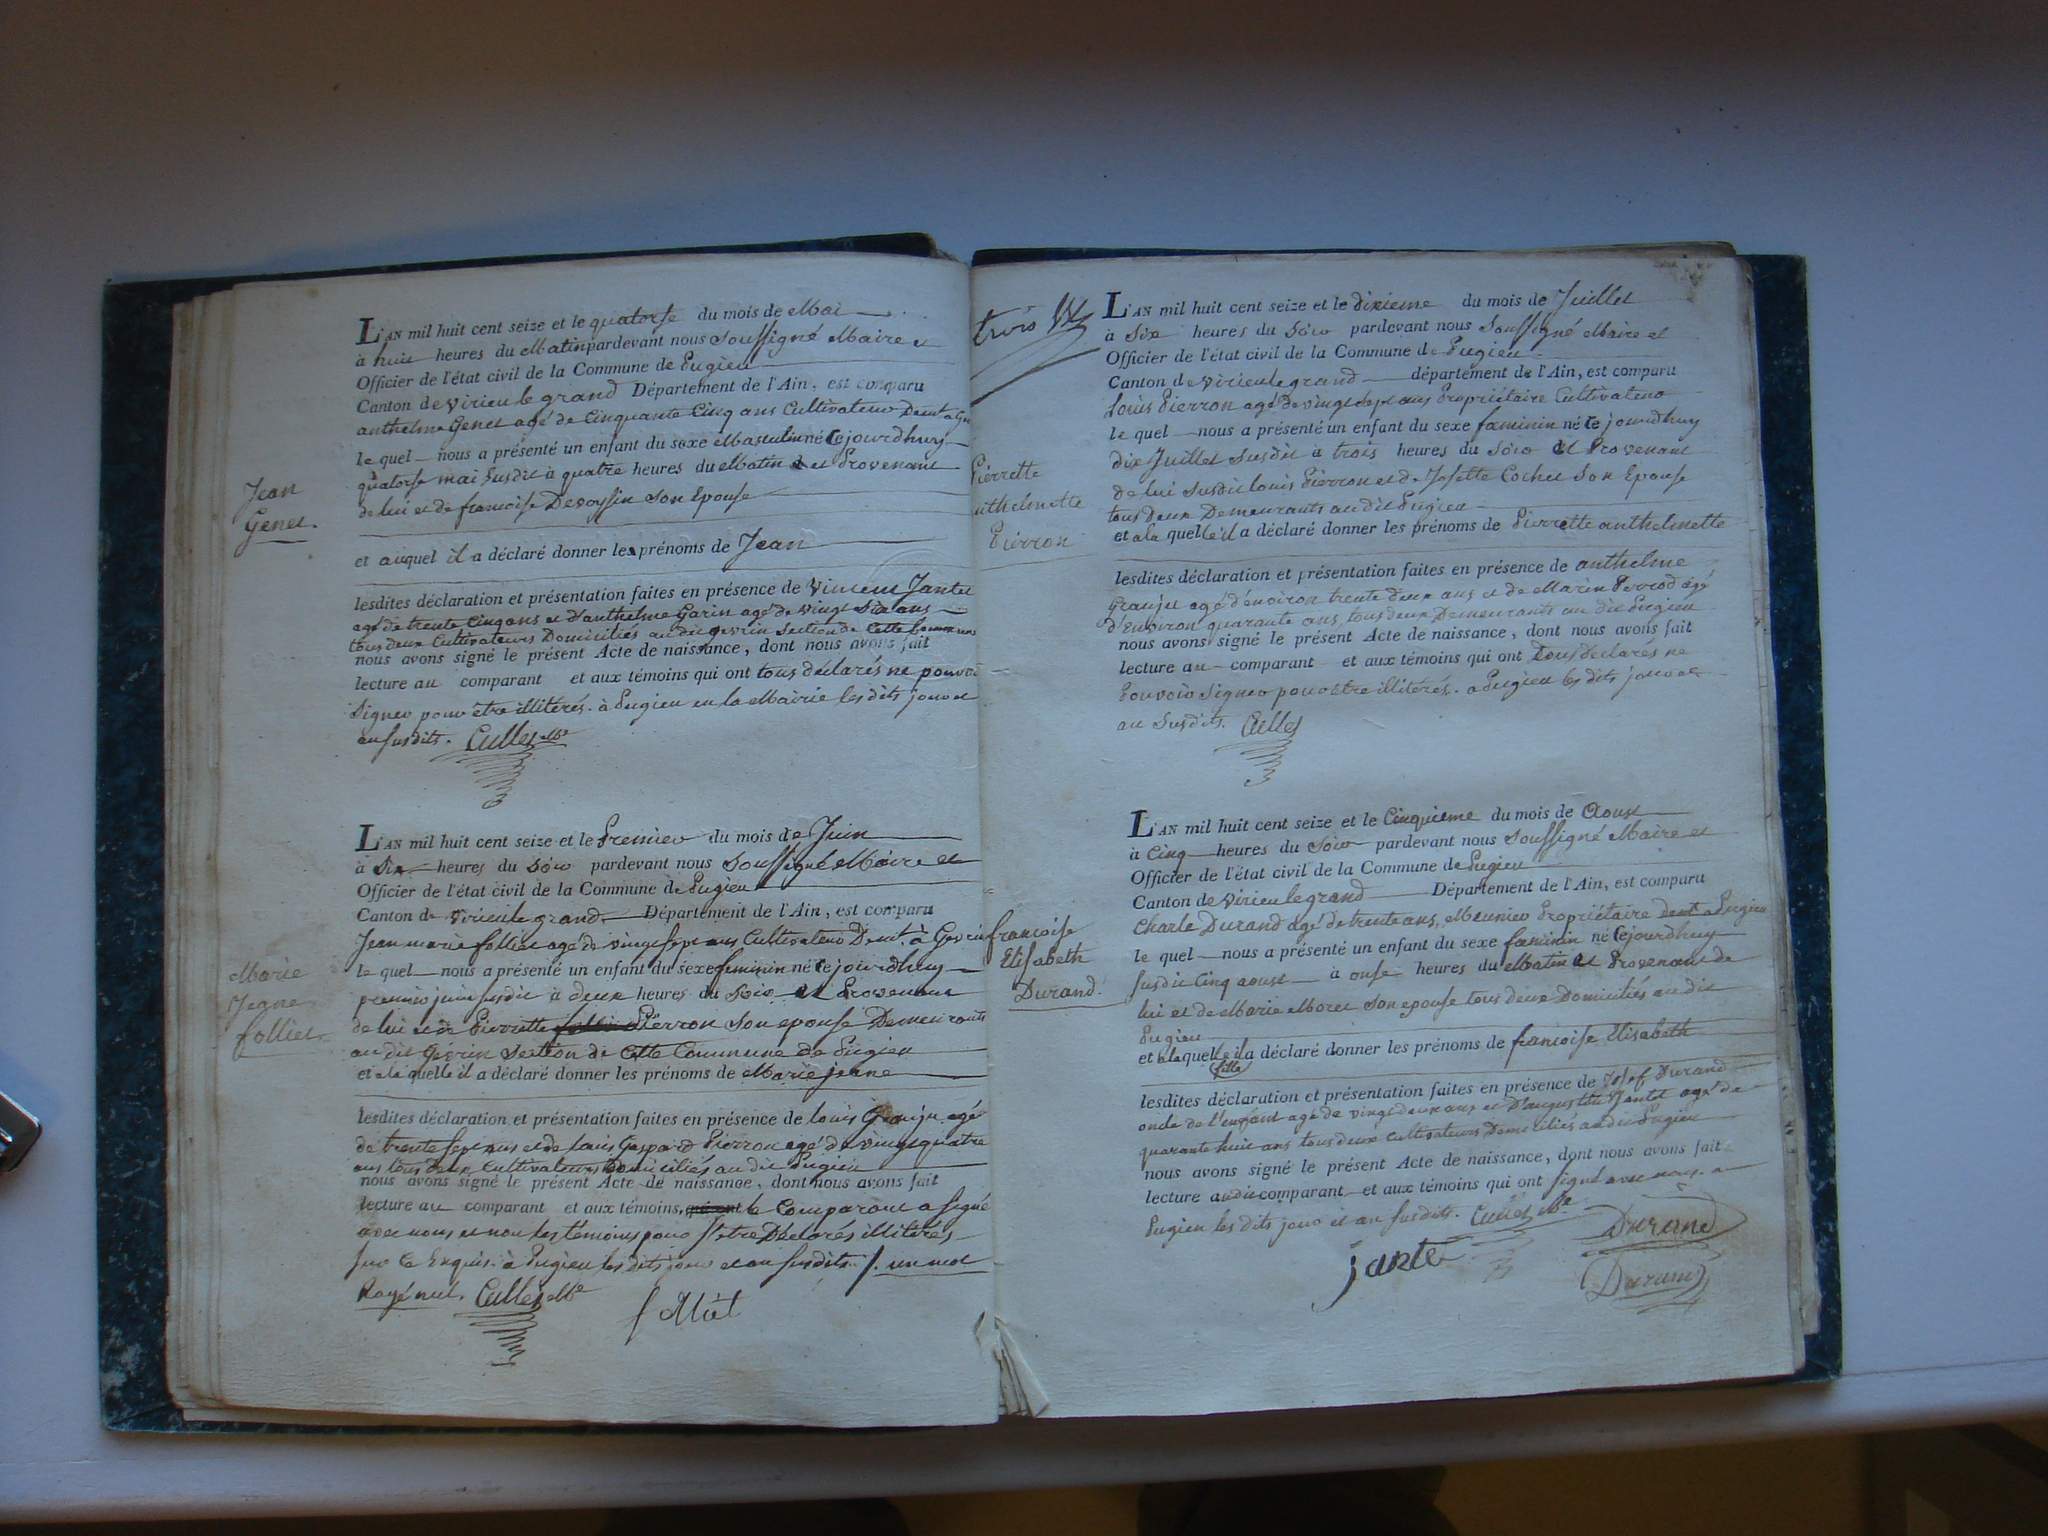 L'AN mil huit cent seize et le quatorse du mois de Mai
à huit heures du Matin pardevant nous Soussigné Maire et
Officier de l'état civil de la Commune de Pugieu
Canton de Virieu le grand Département de l'Ain, est comparu
anthelme Genet agé de Cinquante Cinq ans Cultivateur Demt a
le quel nous a présenté un enfant du sexe Masculin né Cejourdhuy
quatorse mai susdit à quatre heures du Matin et Provenant
de lui et de francoise Devoyssin son Epouse
Jean
Genet.
et auquel il a déclaré donner les prénoms de Jean
lesdites déclaration et présentation faites en présence de Vincent Jantet
agé de trente Cinq ans et d'anthelme Garin agé de vingt Six ans
tous deux Cultivateurs Domiciliés au dit gevrin Section de Cette Commune
nous avons signé le présent Acte de naissance, dont nous avons fait
lecture au comparant et aux témoins qui ont tous déclarés ne pouvoir
Signer pour être illitérés. à Pugieu en la Mairie les dits jour et
an susdits. Cullet Me
L'AN mil huit cent seize et le Premier du mois de Juin
à Six heures du Soir pardevant nous Soussigné Maire et
Officier de l'état civil de la Commune de Pugieu
Canton de Virieu le grand Département de l'Ain, est comparu
Jean marie folliet agé de vingt sept ans Cultivateur Demt. à Gevrin
le quel nous a présenté un enfant du sexe feminin né Cejourdhuy
premier juin susdit à deux heures du Soir et Provenant
de lui et de Pierrette Pierron son epouse Demeurants
au dit Gevrin Section de Cette Commune de Pugieu
Marie
Jeane
folliet
et a la quelle il a déclaré donner les prénoms de Marie jeane
lesdites déclaration et présentation faites en présence de louis Granju agé
de trente sept ans et de louis Gaspard Pierron agé de vingt quatre
ans tous deux Cultivateurs Domiciliés au dit Pugieu
nous avons signé le présent Acte de naissance, dont nous avons fait
lecture au comparant et aux témoins, le Comparant a signé
avec nous et non les témoins pour s'être Déclarés illitérés
sur ce Enquis. à Pugieu les dits jour et an susdits /. un mot
Rayé nul. Cullet Me
trois
L'AN mil huit cent seize et le dixieme du mois de Juillet
à Six heures du Soir pardevant nous Soussigné Maire et
Officier de l'état civil de la Commune de Pugieu
Canton de Virieu le grand département de l'Ain, est comparu
Louis Pierron agé de vingt sept ans Propriétaire Cultivateur
le quel nous a présenté un enfant du sexe faminin né ce jourdhuy
dix Juillet susdit a trois heures du Soir et Provenant
de lui susdit louis Pierron et de Josette Cochet son Epouse
tous deux Demeurants au dit Pugieu
Pierrette
anthelmette
Pierron
et a la quelle il a déclaré donner les prénoms de Pierrette anthelmette
lesdites déclaration et présentation faites en présence de anthelme
Granju agé d'environ trente deux ans et de Marin Perrod agé
d'Environ quarante ans, tous deux Demeurants au dit Pugieu
nous avons signé le présent Acte de naissance, dont nous avons fait
lecture au comparant et aux témoins qui ont tous Déclarés ne
Pouvoir Signer pour être illitérés. a Pugieu les dits jour et
an Susdits. Cullet
L'AN mil huit cent seize et le Cinquieme du mois de Aoust
à Cinq heures du Soir pardevant nous Soussigné Maire et
Officier de l'état civil de la Commune de Pugieu
Canton de Virieu le grand Département de l'Ain, est comparu
Charle Durand agé de trente ans, Meunier Propriétaire demt a Pugieu
le quel nous a présenté un enfant du sexe faminin né Cejourdhuy
susdit Cinq aoust à onse heures du Matin et Provenant de
lui et de Marie Moret son epouse tous deux Domiciliés au dit
Pugieu
francoise
Elisabeth
Durand.
et a la quelle il a déclaré donner les prénoms de francoise Elisabeth
fille
lesdites déclaration et présentation faites en présence de Josef Durand
oncle de l'enfant agé de vingt deux ans et D'augustin Jantet agé de
quarante huit ans tous deux Cultivateurs Domiciliés au dit Pugieu
nous avons signé le présent Acte de naissance, dont nous avons fait
lecture audit comparant et aux témoins qui ont signé avec nous. a
Pugieu les dits jour et an susdits. Cullet Me
Durand
jantet
Durand